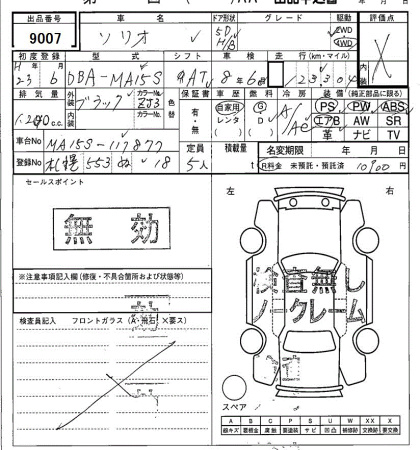 出品番号 車名 ドア形状 グレード 駆動 評価点
9007 ソリオ 5D H/B 2WD 4WD
初度登録 型式 シフト 車検 走行(km・マイル) 内装
H 23年 6月 DBA-MA15S AT 8年6月
排気量 外装 ブラック カラーNo. ZJ3 色替 保証書 車歴 燃料 冷房 装備(純正部品に限る)
cc. 内装 カラーNo. 有・無 自家用 レンタ G D A/C PS PW ABS
エアB AW SR
革 ナビ TV
車台No. MA15S-117877 定員 積載量 名変期限 年 月 日
登録No. 札幌 553 ぬ 18 5人 t R料金 未預託・預託済 円
セールスポイント 左 右
無効
※注意事項記入欄(修復・不具合箇所および状態等)
検査無し
ノークレーム
検査員記入 フロントガラス(A・飛石×要ス)
スペア
A B C P S U W X XX
線キズ 腐蝕 要塗装 サビ 凹凸 補修跡 交換跡 要交換